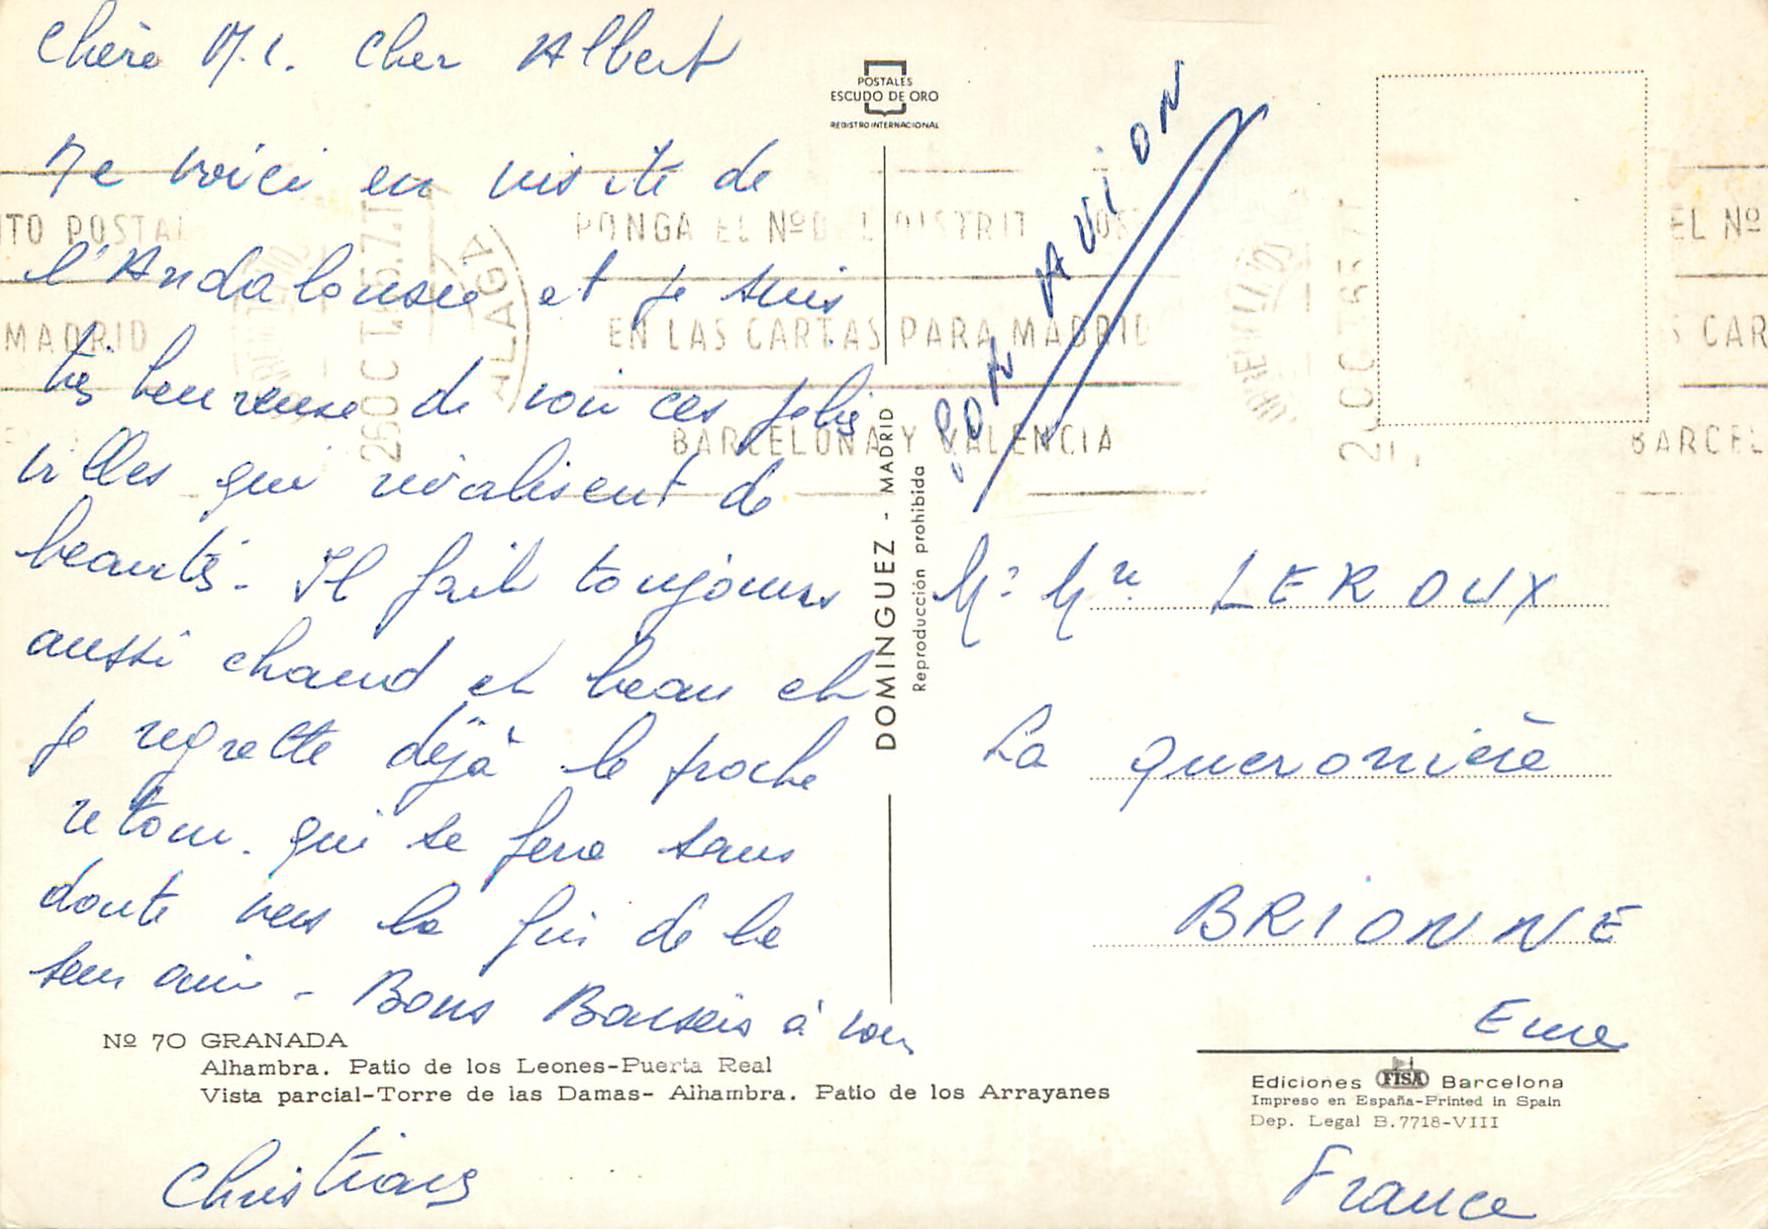 Chère M.L. Cher Albert
Me voici en visite de
l'Andalousie et je suis
très heureuse de voir ces jolies
villes qui rivalisent de
beautés. Il fait toujours
aussi chaud et beau et
je regrette déjà le proche
retour. qui se fera sans
doute vers la fin de la
semaine - Bons Baisers à vous
Christiane
Nº 70 GRANADA
Alhambra. Patio de los Leones-Puerta Real
Vista parcial-Torre de las Damas- Alhambra. Patio de los Arrayanes
POSTALES
ESCUDO DE ORO
REGISTRO INTERNACIONAL
DOMINGUEZ - MADRID
Reproducción prohibida
PONGA EL Nº DEL DISTRITO POSTAL
EN LAS CARTAS PARA MADRID
BARCELONA Y VALENCIA
MALAGA
26 OCT
ITO POSTAL
MADRID
EL Nº
S CAR
BARCEL
PAR AVION
Mr Mme LEROUX
La Queronière
BRIONNE
Eure
France
Ediciones FISA Barcelona
Impreso en España-Printed in Spain
Dep. Legal B.7718-VIII